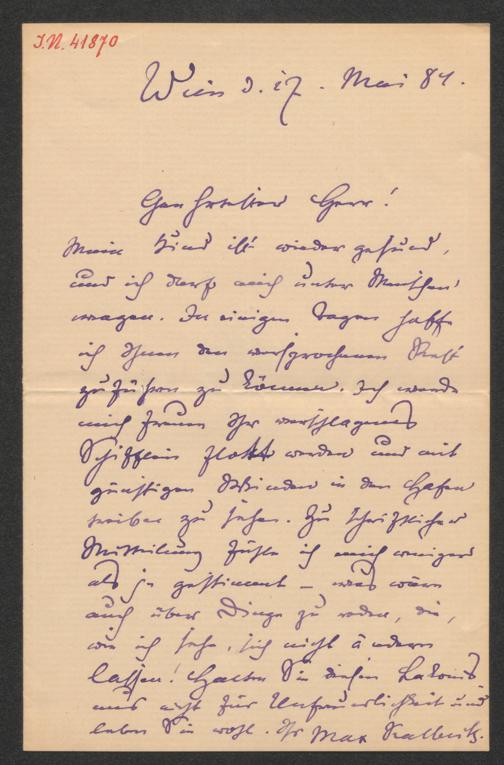 I.N. 41870
Wien d. 17. Mai 84.
Geehrtester Herr!
Mein Kind ist wieder gesund,
und ich darf mich unter Menschen
wagen. In einigen Tagen hoffe
ich Ihnen den versprochenen Rest
zuführen zu können. Ich werde
mich freuen Ihr verschlagenes
Schifflein flott werden und mit
günstigen Winden in den Hafen
treiben zu sehen. Zu schriftlicher
Mitteilung fühle ich mich weniger
als je gestimmt – was wäre
auch über Dinge zu reden, die,
wie ich sehe, sich nicht ändern
lassen! Halten Sie diesen Lakonis
mus nicht für Unfreundlichkeit und
leben Sie wohl. Ihr Max Kalbeck.